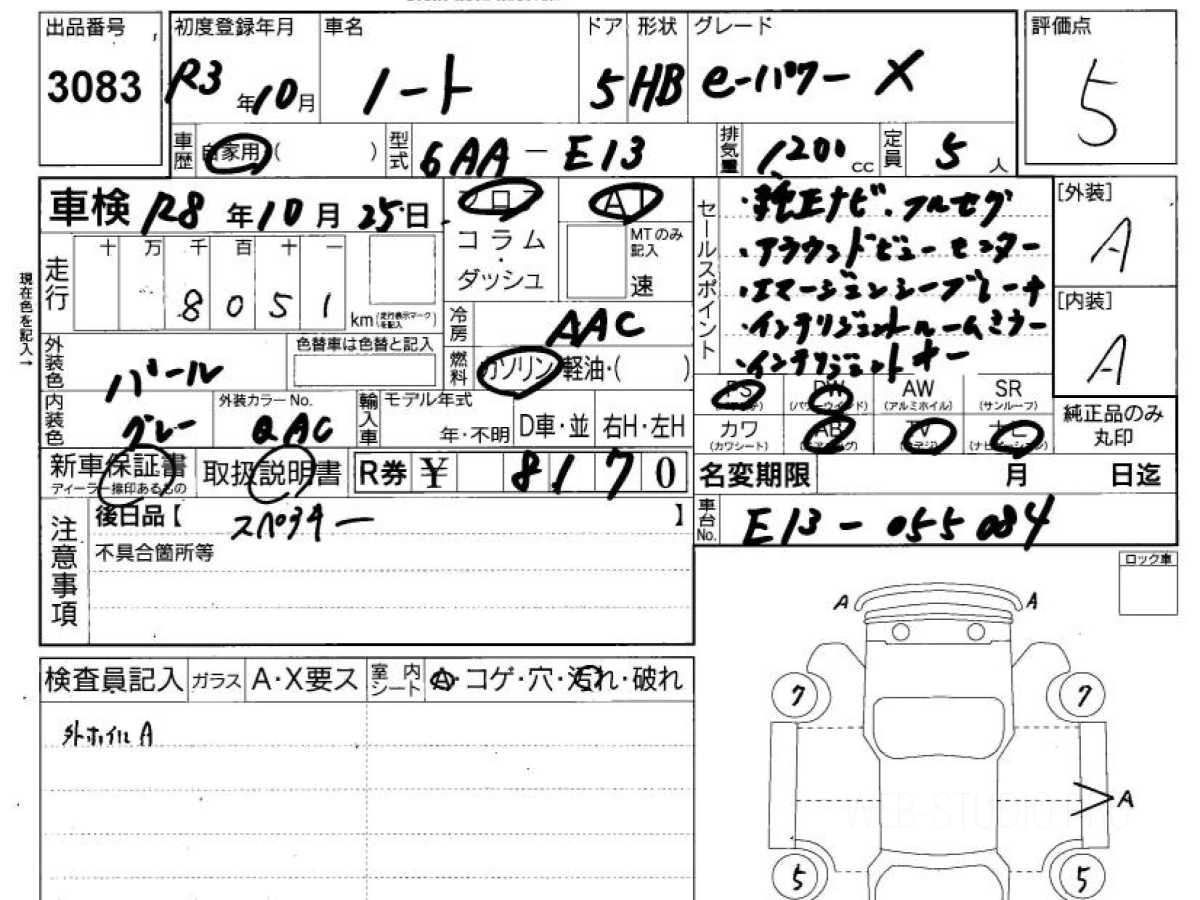 出品番号
3083
初度登録年月 R3年10月
車名 ノート
ドア 5
形状 HB
グレード e-パワー X
評価点 5
車歴 自家用( )
型式 6AA-E13
排気量 1200cc
定員 5人
車検 R8年10月25日
フロア
コラム・ダッシュ
AT
MTのみ記入 速
セールスポイント
・純正ナビ、フルセグ
・アラウンドビューモニター
・エマージェンシーブレーキ
・インテリジェントルームミラー
・インテリジェントキー
[外装] A
[内装] A
現在色を記入→
走行 十 万 千 百 十 一
8 0 5 1 km(走行表示マークを記入)
冷房 AAC
燃料 ガソリン・軽油・( )
外装色 パール
色替車は色替と記入
内装色 グレー
外装カラーNo. QAC
輸入車 モデル年式 年・不明 D車・並 右H・左H
PS(パワステ) PW(パワーウインド) AW(アルミホイル) SR(サンルーフ)
カワ(カワシート) AB(エアバッグ) TV ナビ(ナビゲーション)
純正品のみ丸印
新車保証書
ディーラー捺印あるもの
取扱説明書
R券 ¥ 8170
名変期限 月 日迄
車台No. E13-055084
注意事項
後日品【 スペアキー 】
不具合箇所等
ロック車
A A
検査員記入 ガラス A・X要ス 室内シート A・コゲ・穴・汚れ・破れ
外ホイルA
7 7
A
WEB-STUDIO.PRO
5 5